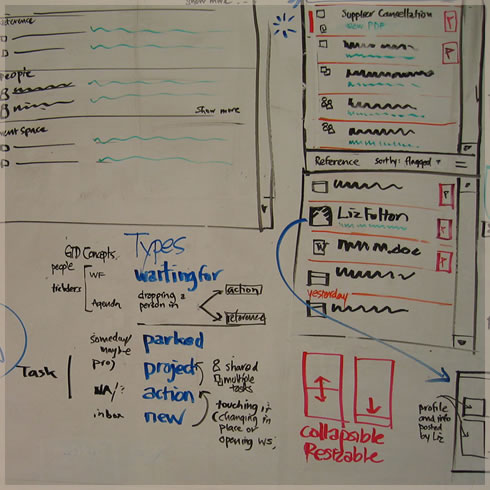 Show more...
Reference
people
Show more
ent space
Supplier Cancellation
new PDF
Reference sortby: flagged
Liz Fulton
.doc
yesterday
GTD Concepts
people
ticklers
WF
Agenda
Types
waiting for
dropping a
person in
action
reference
someday/
maybe
proj
Task
NA/?
inbox
parked
project
action
new
& shared
multiple
tasks
touching it
(changing in
place or
opening WS)
collapsible
Resizable
profile
and info
posted
by Liz